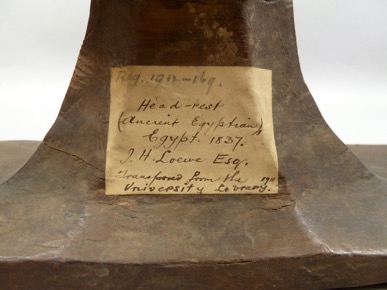 Reg. 1911-169.
Head-rest
(Ancient Egyptian)
Egypt. 1837.
J. H. Loewe Esq.
Transferred from the 1911
University Library.